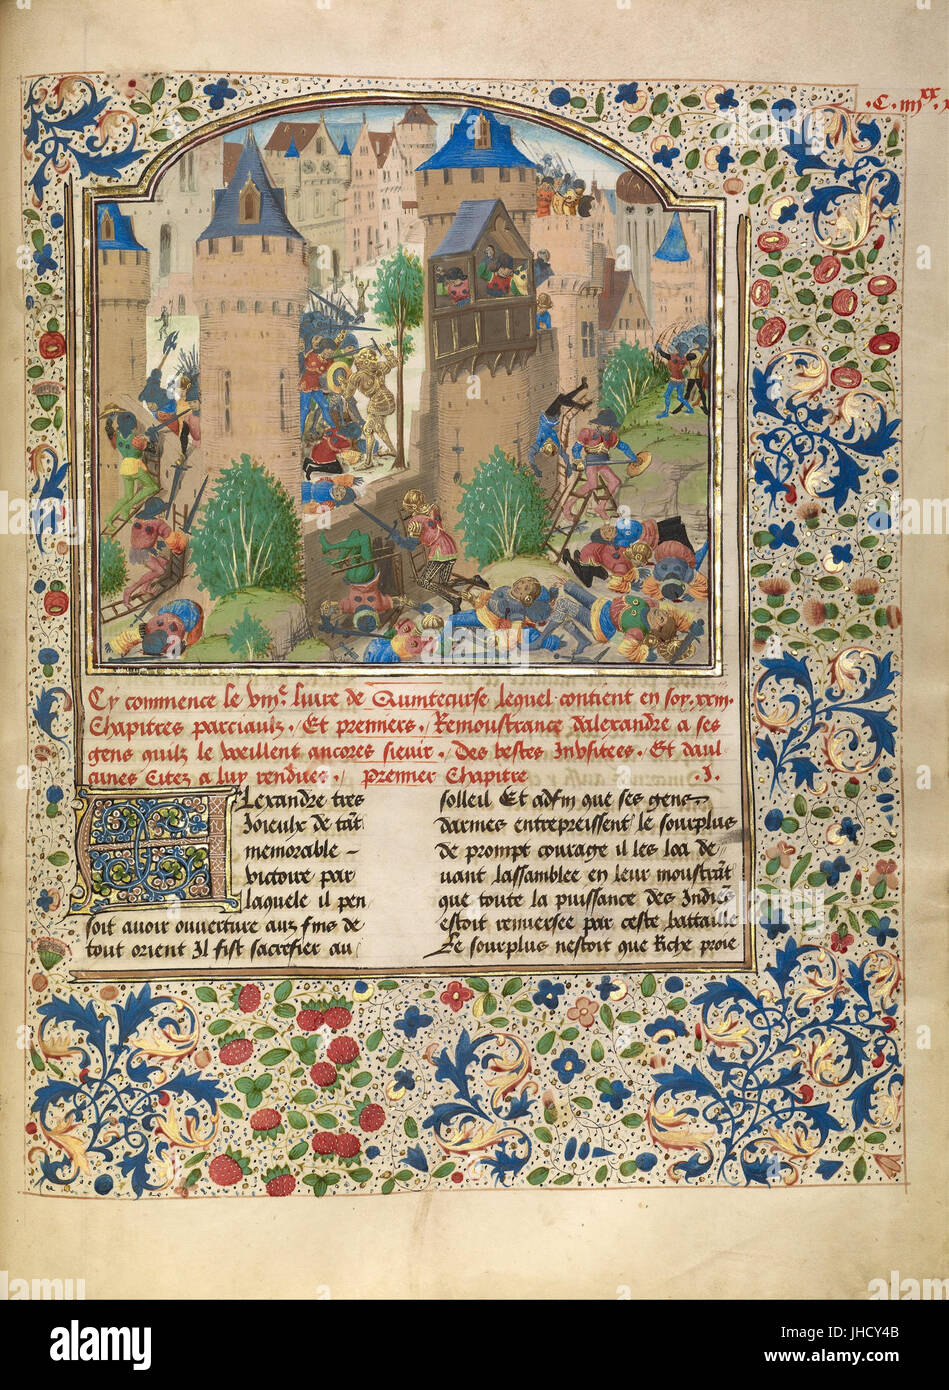 .C. iiij xx x
Cy commence le viije liure de Quintecurse lequel contient en soy .xxiii.
Chapitres parciaulx . Et premiers . Remoustrance dalexandre a ses
gens quilz le vueillent ancores sieuir . Des bestes Invsitees . Et daul
cunes Citez a luy rendues . premier Chapitre .I.
Alexandre tres
Joieulx de tāt
memorable
victoire par
laquele il pen
soit auoir ouuerture aux fins de
tout orient Il fist sacrefier au
solleil Et adfin que ses gens
darmes entrepreissent le sourplus
de prompt courage il les loa de
uant lassamblee en leur moustrāt
que toute la puissance des Indiēs
estoit renuersee par ceste battaille
Le sourplus nestoit que Riche proie
a
alamy
alamy
Image ID: JHCY4B
www.alamy.com